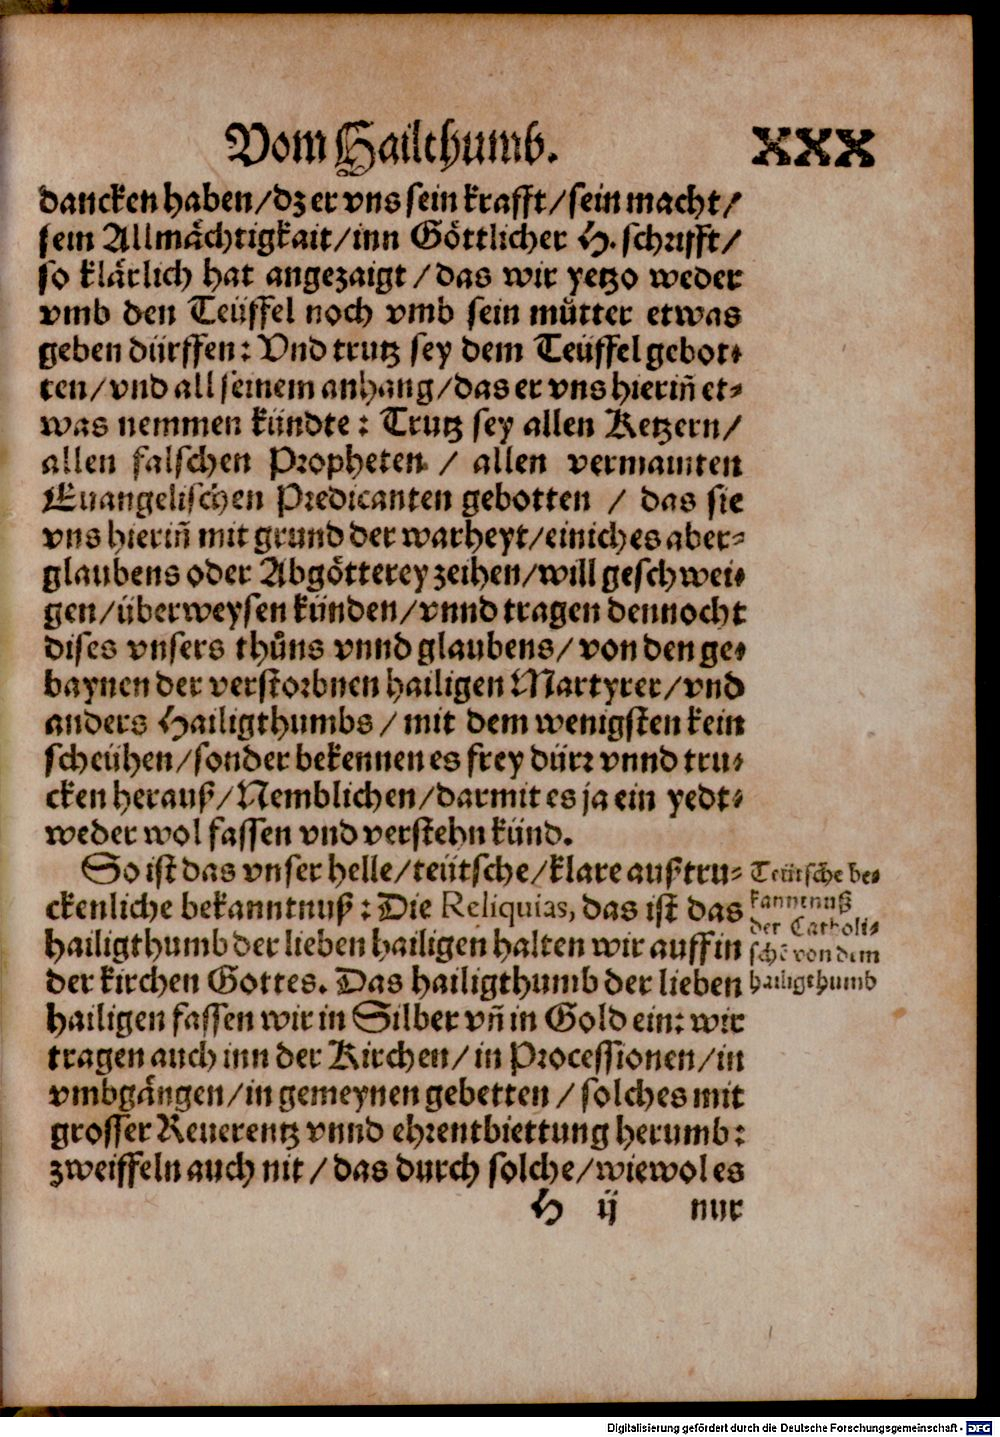 Vom Hailthumb. XXX
dancken haben/dz er vns sein krafft/sein macht/
sein Allmächtigkait/inn Göttlicher H. schrifft/
so klärlich hat angezaigt/das wir yetzo weder
vmb den Teüffel noch vmb sein můtter etwas
geben dürffen: Vnd trutz sey dem Teüffel gebot⸗
ten/vnd all seinem anhang/das er vns hierin̄ et⸗
was nemmen kündte: Trutz sey allen Ketzern/
allen falschen Propheten / allen vermainten
Euangelischen Predicanten gebotten / das sie
vns hierin̄ mit grund der warheyt/einiches aber⸗
glaubens oder Abgötterey zeihen/will geschwei⸗
gen/überweysen künden/vnnd tragen dennocht
dises vnsers thůns vnnd glaubens/von den ge⸗
baynen der verstorbnen hailigen Martyrer/vnd
anders Hailigthumbs/mit dem wenigsten kein
scheühen/sonder bekennen es frey dürr vnnd tru⸗
cken herauß/Nemblichen/darmit es ja ein yedt⸗
weder wol fassen vnd verstehn künd.
So ist das vnser helle/teütsche/klare außtru⸗
ckenliche bekanntnuß: Die Reliquias, das ist das
hailigthumb der lieben hailigen halten wir auff in
der kirchen Gottes. Das hailigthumb der lieben
hailigen fassen wir in Silber vn̄ in Gold ein: wir
tragen auch inn der Kirchen/in Processionen/in
vmbgängen/in gemeynen gebetten / solches mit
grosser Reuerentz vnnd ehrentbiettung herumb:
zweiffeln auch nit / das durch solche/wiewol es
H ij nur
Teütsche be⸗
kanntnuß
der Catholi⸗
schē von dem
hailigthumb
Digitalisierung gefördert durch die Deutsche Forschungsgemeinschaft - DFG